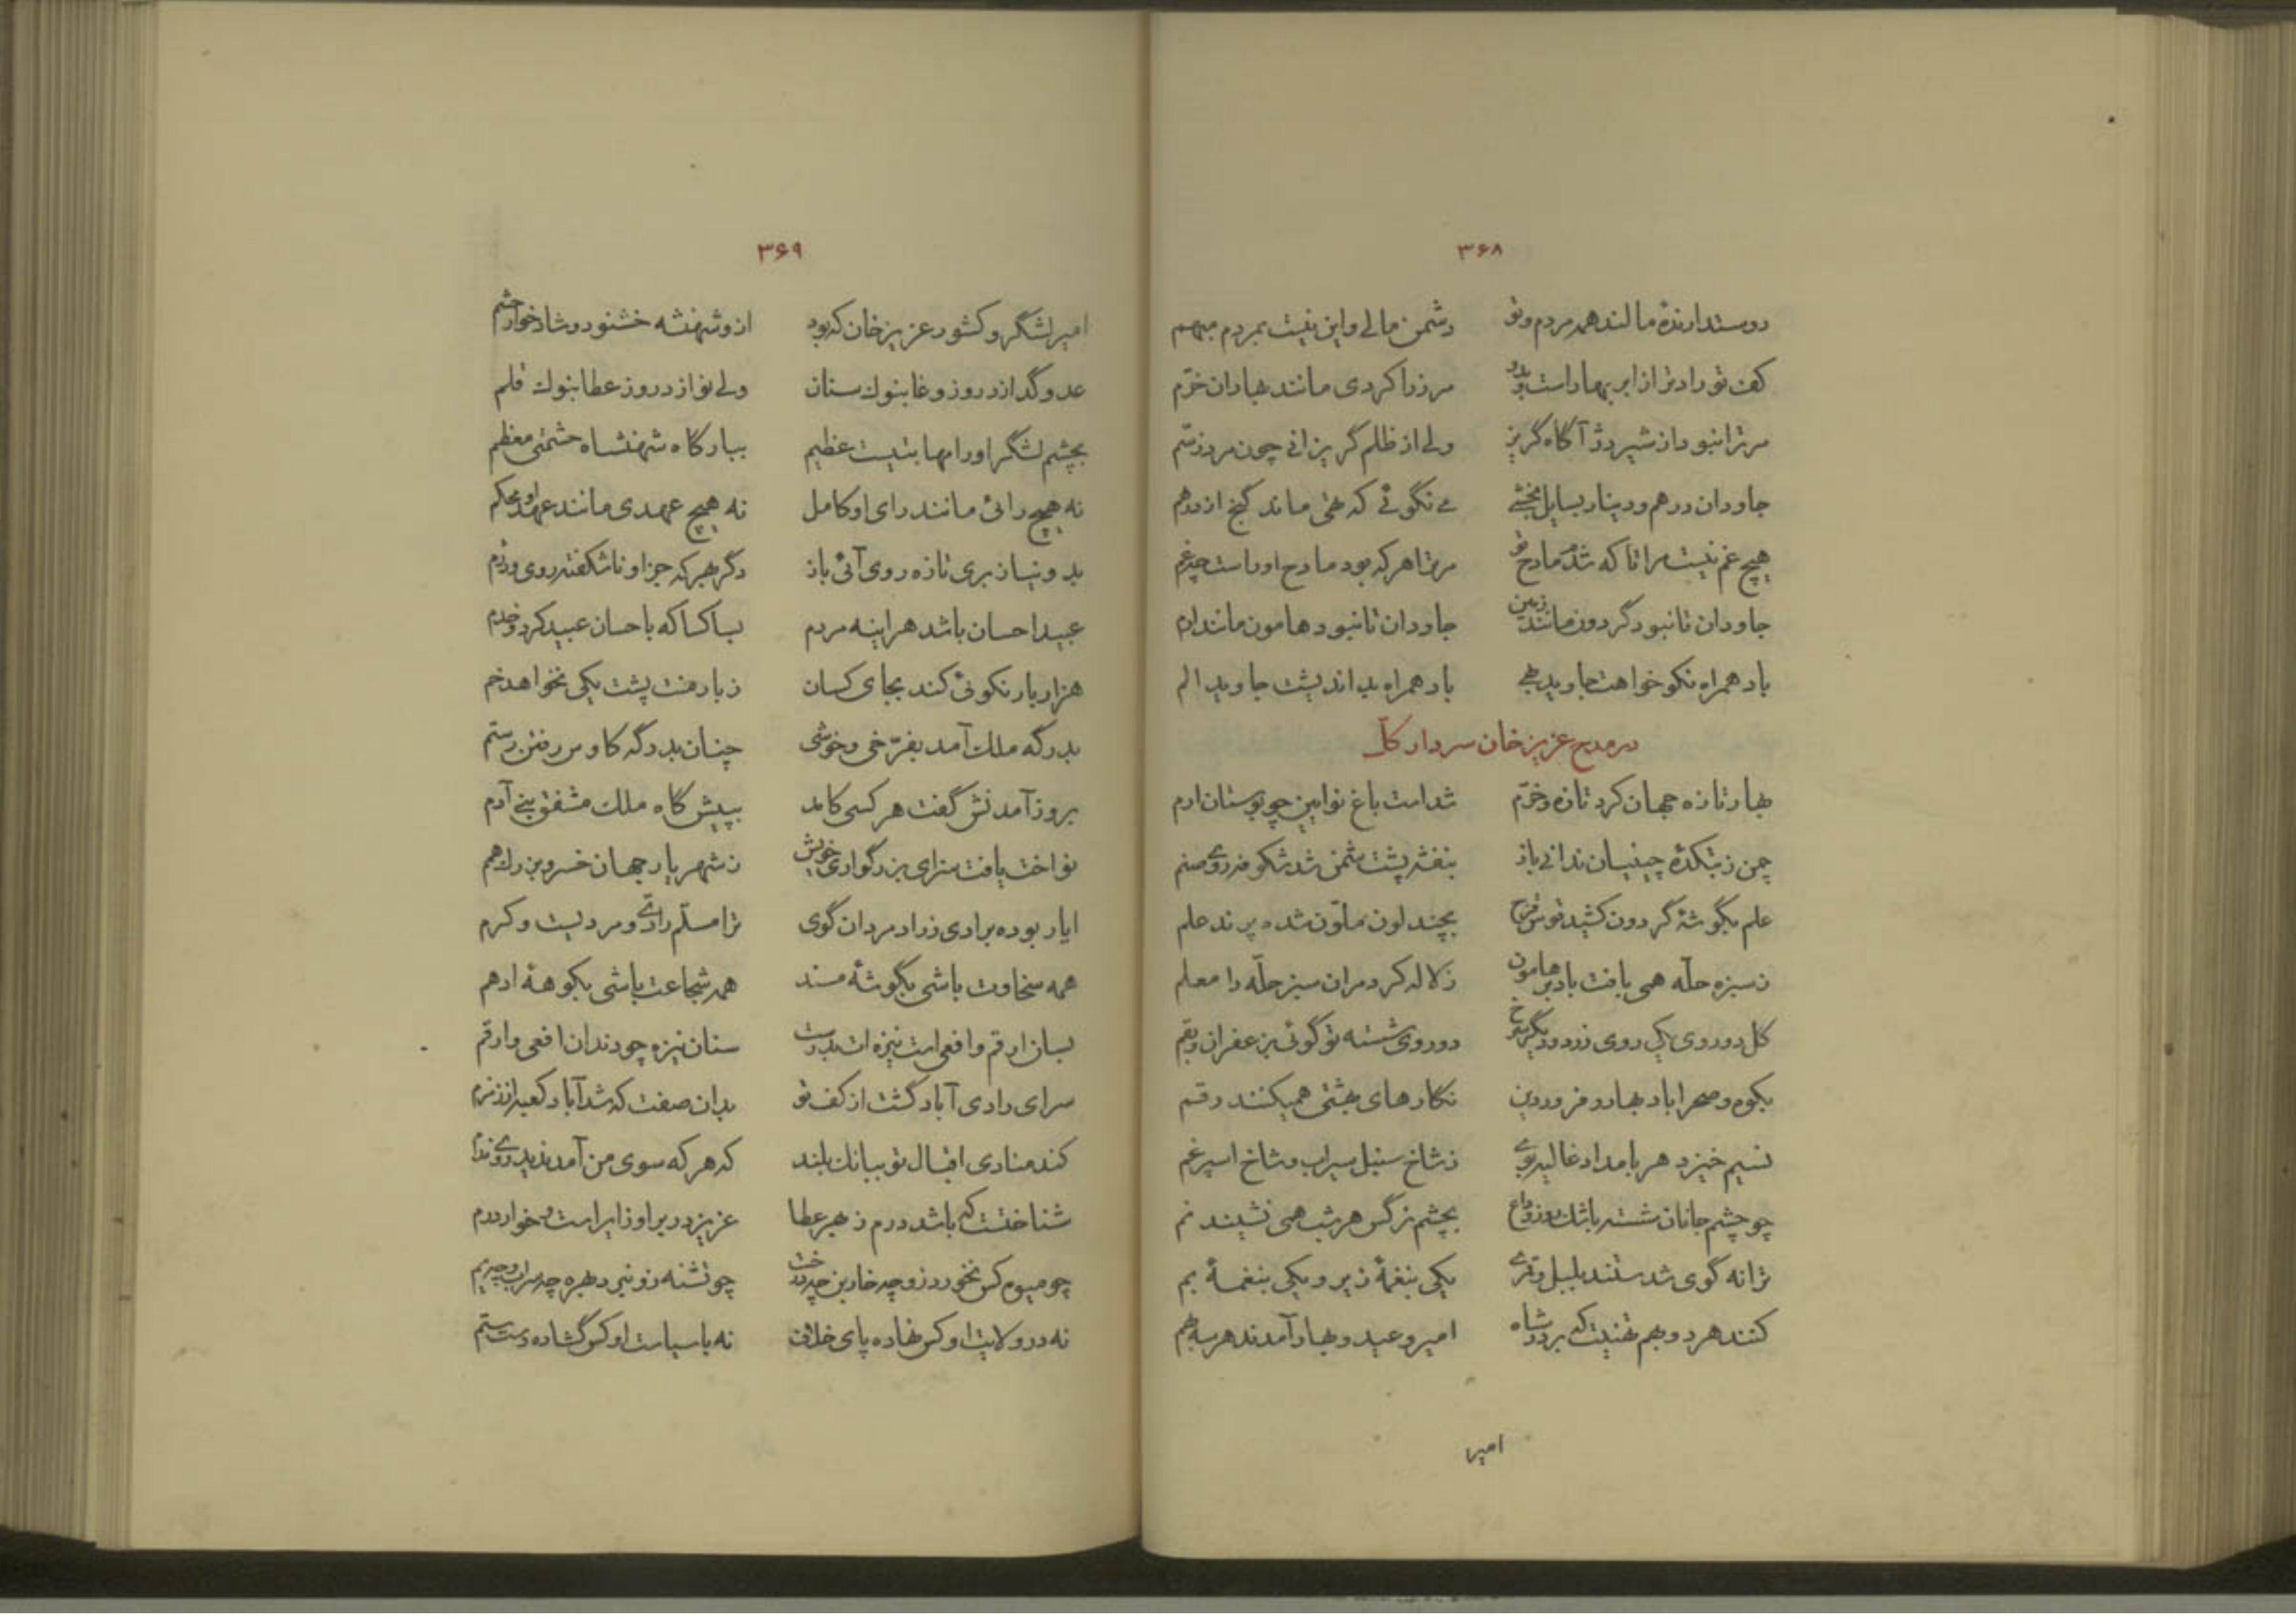 ۳۶۸
دوستدارندهٔ مالند همه مردم و تو دشمن مالی و این نیست بمردم مبهم
کف تو رادتر از ابر بهار است و بدو مر زرا کردی مانند بهاران خرّم
مر ترا نبود از شیر دژ آگاه گریز ولی از ظلم گریزانی چون مرد ز سم
جاودان درهم و دینار بسایل بخشی می نگوئی که تهی ماند گنج از درهم
هیچ غم نیست مرا تا که شدم مادح تو مر ترا هر که بود مادح او راست چه غم
جاودان تا نبود گردون مانند زمین جاودان تا نبود هامون مانند
باد همراه نکو خواهت جاوید بهی باد همراه بد اندیشت جاوید الم
در مدح عزیز خان سردار کل
بهار تازه جهان کرد تازه و خرّم شد است باغ نو آیین چو بوستان ارم
چمن ز بتکدهٔ چینیان ندانی باز بنفشه پشت شمن شد شکوفه روی صنم
علم بگوشهٔ گردون کشید قوس قزح بچند لون ملوّن شده پرند علم
ز سبزه حلّه همی بافت باد بر هامون ز لاله کرد مر آن سبز حلّه را معلم
گل دوروی یکی روی زرد و دیگر سرخ دوروی شسته تو گوئی بزعفران و بقم
بکوه و صحرا باد بهار و فروردین نگارهای بهشتی همیکنند رقم
نسیم خیزد هر بامداد غالیه بوی ز شاخ سنبل سیراب و شاخ اسپرغم
چو چشم جانان شسته باشک روز وداع بچشم نرگس هر شب همی نشیند نم
ترانه گوی شدستند بلبل و قمری یکی بنغمهٔ زیر و یکی بنغمهٔ بم
کنند هر دو بهم تهنیت که بر در شاه امیر و عید و بهار آمدند هر سه بهم
امیر
۳۶۹
امیر لشگر و کشور عزیز خان که بود ازو شهنشه خشنود و شاد خوار حشم
عدو گدازد روز وغا بنوک سنان ولی نوازد روز عطا بنوک قلم
بچشم لشگر او را مهابتیست عظیم ببارگاه شهنشاه حشمتی معظم
نه هیچ رائی مانند رای او کامل نه هیچ عهدی مانند عهد او محکم
بدو نیاز بری تازه روی آئی باز دگر بهر که جز او ناشکفته روی و دژم
عبید احسان باشد هر اینه مردم بسا کسا که باحسان عبید کرد و خدم
هزار بار نکوئی کند بجای کسان ز بار منت پشت یکی نخواهد خم
بدرگه ملک آمد بفرّخی و خوشی چنان بدرگه کاوس رفتن رستم
بروز آمدنش گفت هر کسی کامد بپیش گاه ملک مشفق بنی آدم
نواخت یافت سزای بزرگواری خویش ز شهریار جهان خسرو بزرگ همم
ایا ربوده برادی ز راد مردان گوی ترا مسلّم رادی و مردیست و کرم
همه سخاوت باشی بگوشهٔ مسند همه شجاعت باشی بکوههٔ ادهم
بسان ارقم و افعی است نیزه ات بدرست سنان نیزه چو دندان افعی و ارقم
سرای رادی آباد گشت از کف تو بدان صفت که شد آباد کعبه از زمزم
کند منادی اقبال تو ببانک بلند که هر که سوی من آمد ندید روی ندم
شناختت که باشد درم ز بهر عطا عزیز در بر او زایر است و خوار درم
چو میوه کس نخورد زو چه خاربن چه درخت چو تشنه زو نبرد بهره چه سراب و چه یم
نه در ولایت او کس نهاده پای خلاف نه با سیاست او کس گشاده دست ستم